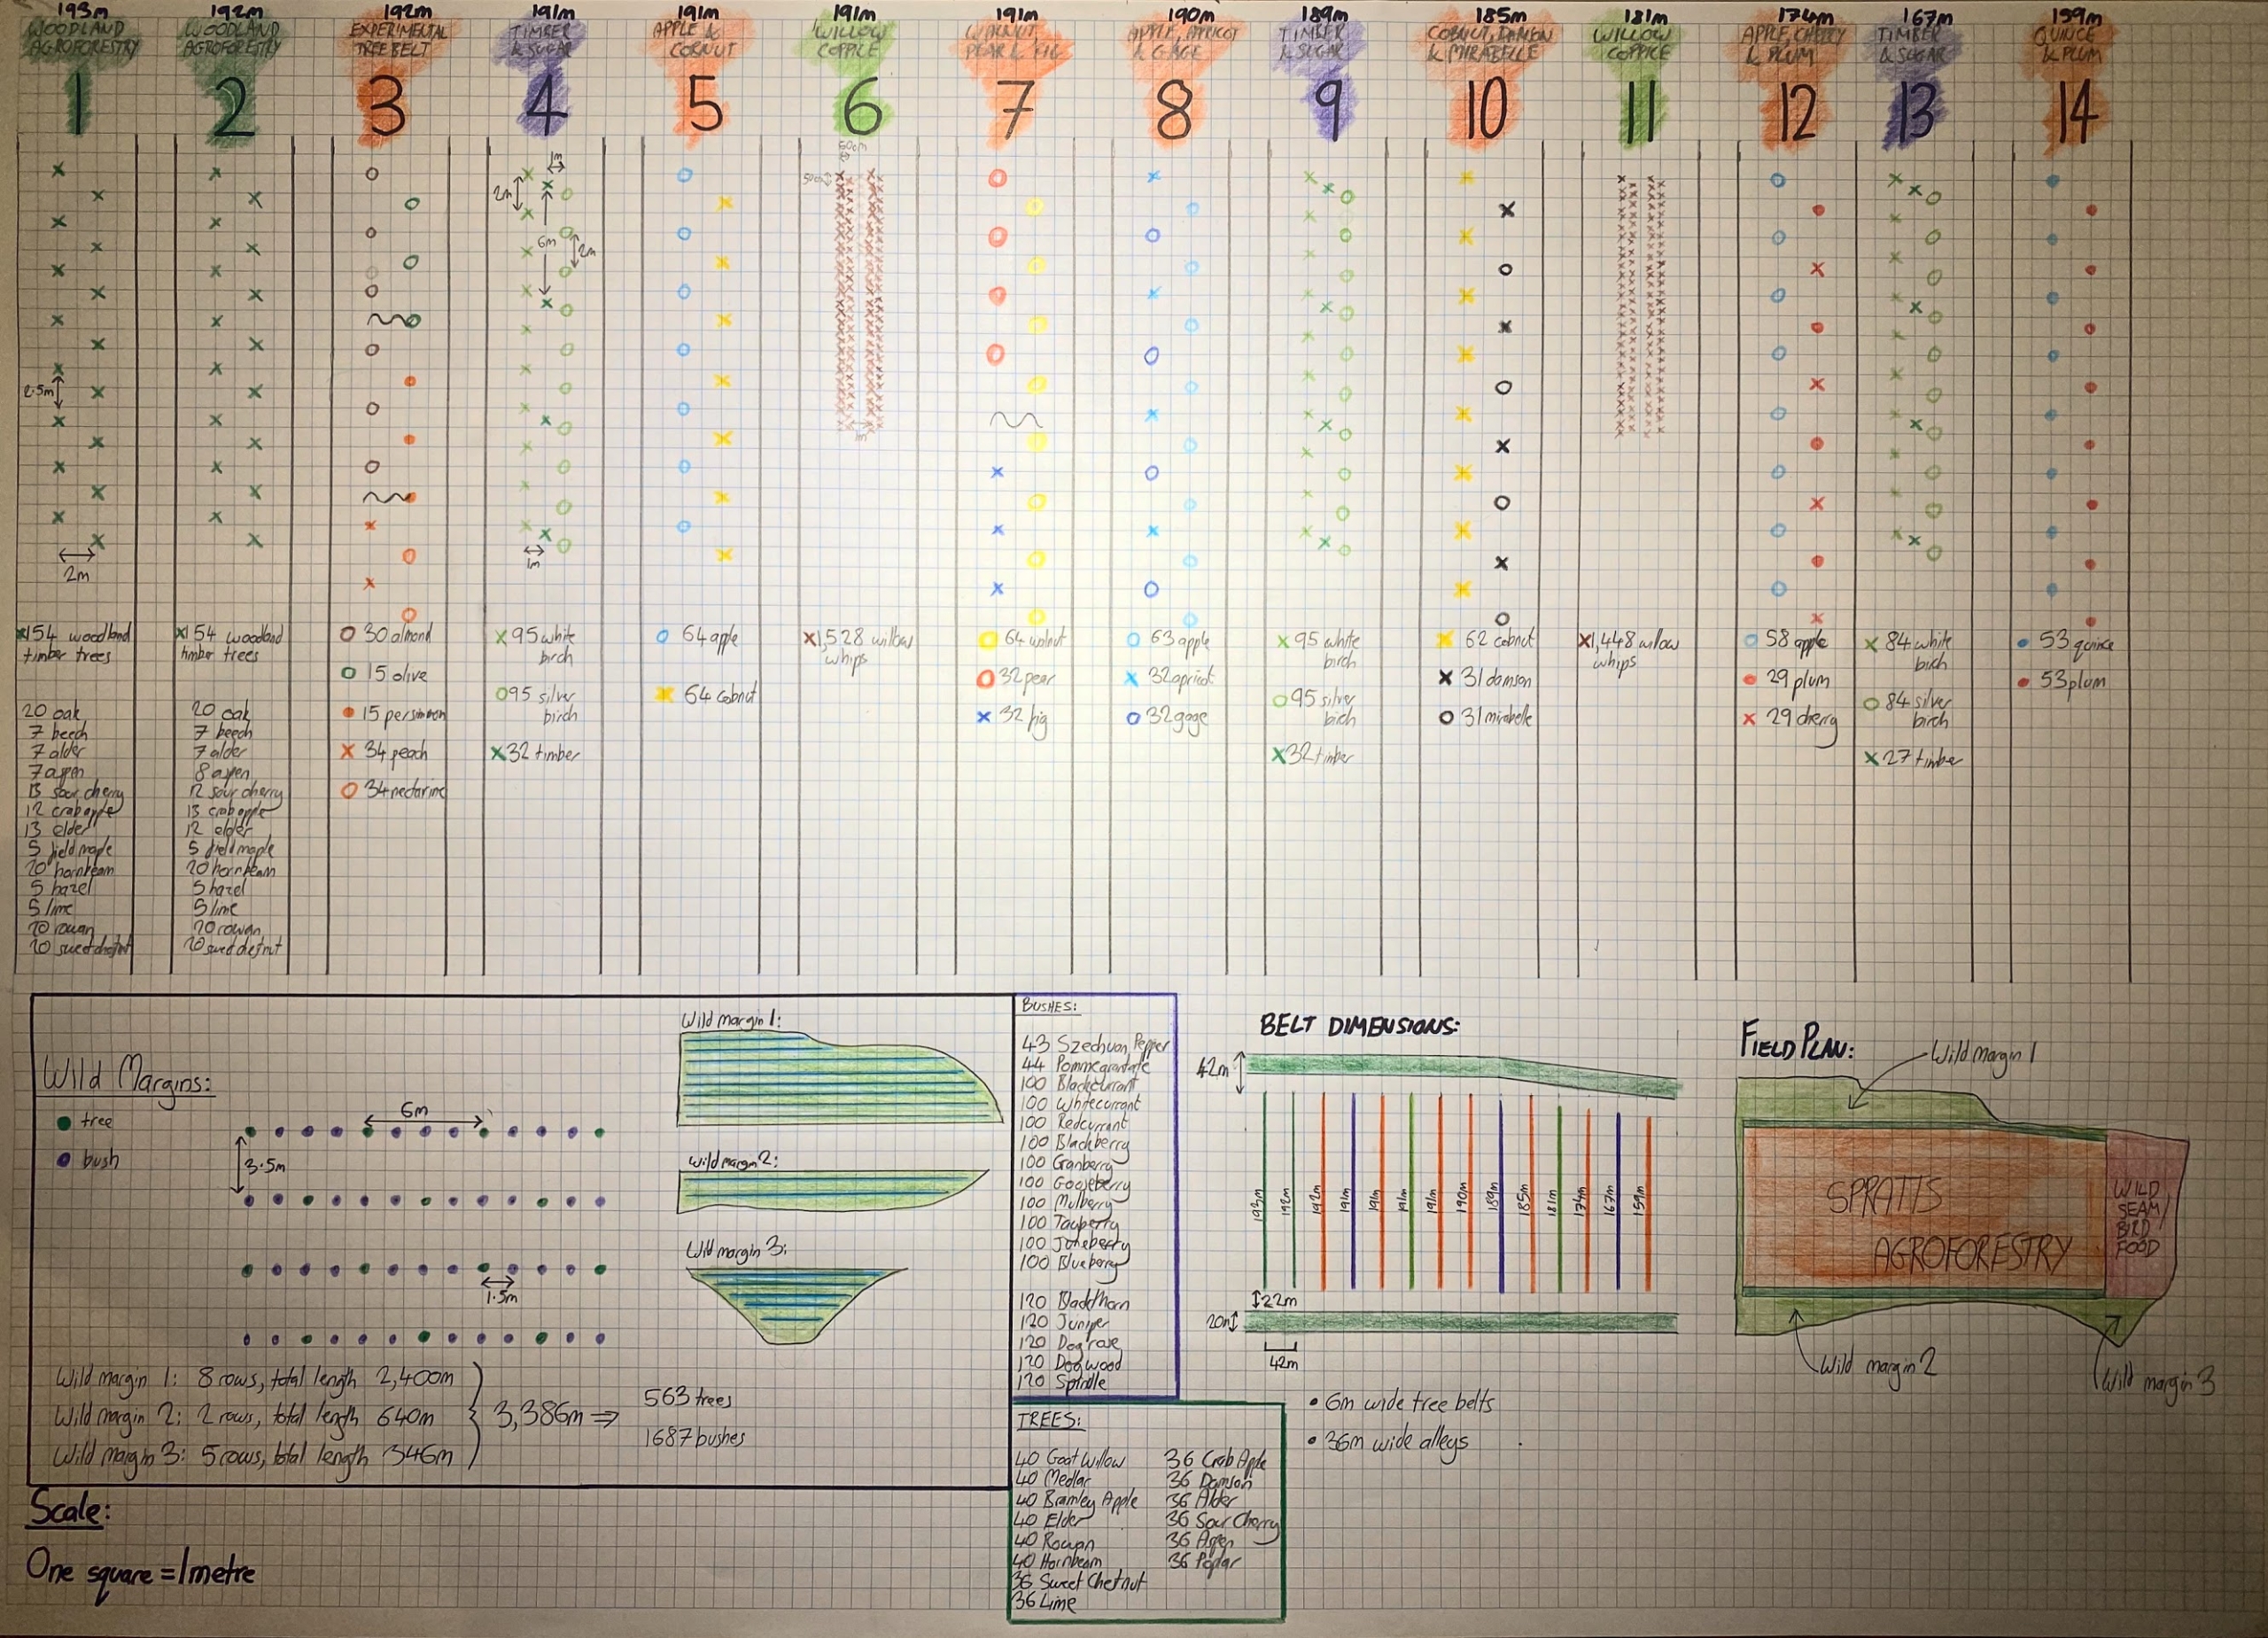 193m
WOODLAND
AGROFORESTRY
1
192m
WOODLAND
AGROFORESTRY
2
192m
EXPERIMENTAL
TREE BELT
3
191m
TIMBER
& SUGAR
4
191m
APPLE &
COBNUT
5
191m
WILLOW
COPPICE
6
191m
WALNUT,
PEAR & FIG
7
190m
APPLE, APRICOT
& GAGE
8
189m
TIMBER
& SUGAR
9
185m
COBNUT, DAMSON
& MIRABELLE
10
181m
WILLOW
COPPICE
11
174m
APPLE, CHERRY
& PLUM
12
167m
TIMBER
& SUGAR
13
159m
QUINCE
& PLUM
14
2.5m
2m
1m
2m
6m
2m
1m
50cm
50cm
1m
154 woodland
timber trees
20 oak
7 beech
7 alder
7 aspen
13 sour cherry
12 crab apple
13 elder
5 field maple
20 hornbeam
5 hazel
5 lime
20 rowan
20 sweet chestnut
154 woodland
timber trees
20 oak
7 beech
7 alder
8 aspen
12 sour cherry
13 crab apple
12 elder
5 field maple
20 hornbeam
5 hazel
5 lime
20 rowan
20 sweet chestnut
30 almond
15 olive
15 persimmon
34 peach
34 nectarine
95 white
birch
95 silver
birch
32 timber
64 apple
64 cobnut
1,528 willow
whips
64 walnut
32 pear
32 fig
63 apple
32 apricot
32 gage
95 white
birch
95 silver
birch
32 timber
62 cobnut
31 damson
31 mirabelle
1,448 willow
whips
58 apple
29 plum
29 cherry
84 white
birch
84 silver
birch
27 timber
53 quince
53 plum
Wild Margins:
tree
bush
6m
3.5m
1.5m
Wild margin 1:
Wild margin 2:
Wild margin 3:
Wild margin 1: 8 rows, total length 2,400m
Wild margin 2: 2 rows, total length 640m
Wild margin 3: 5 rows, total length 346m
3,386m ⇒
563 trees
1687 bushes
Scale:
One square = 1 metre
BUSHES:
43 Szechuan Pepper
44 Pommegrantate
100 Blackcurrant
100 Whitecurrant
100 Redcurrant
100 Blackberry
100 Cranberry
100 Gooseberry
100 Mulberry
100 Tayberry
100 Juneberry
100 Blueberry
120 Blackthorn
120 Juniper
120 Dog rose
120 Dogwood
120 Spindle
TREES:
40 Goat Willow
40 Medlar
40 Bramley Apple
40 Elder
40 Rowan
40 Hornbeam
36 Sweet Chestnut
36 Lime
36 Crab Apple
36 Damson
36 Alder
36 Sour Cherry
36 Aspen
36 Poplar
BELT DIMENSIONS:
42m
193m
192m
192m
191m
191m
191m
191m
190m
189m
185m
181m
174m
167m
159m
22m
20m
42m
• 6m wide tree belts
• 36m wide alleys
FIELD PLAN:
Wild margin 1
SPRATTS
AGROFORESTRY
WILD
SEAM/
BIRD
FOOD
Wild margin 2
Wild margin 3